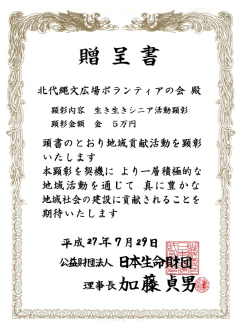 贈呈書
北代縄文広場ボランティアの会 殿
顕彰内容 生き生きシニア活動顕彰
顕彰金額 金 5万円
頭書のとおり地域貢献活動を顕彰
いたします
本顕彰を契機に より一層積極的な
地域活動を通じて 真に豊かな
地域社会の建設に貢献されることを
期待いたします
平成27年7月29日
公益財団法人 日本生命財団
理事長 加藤貞男